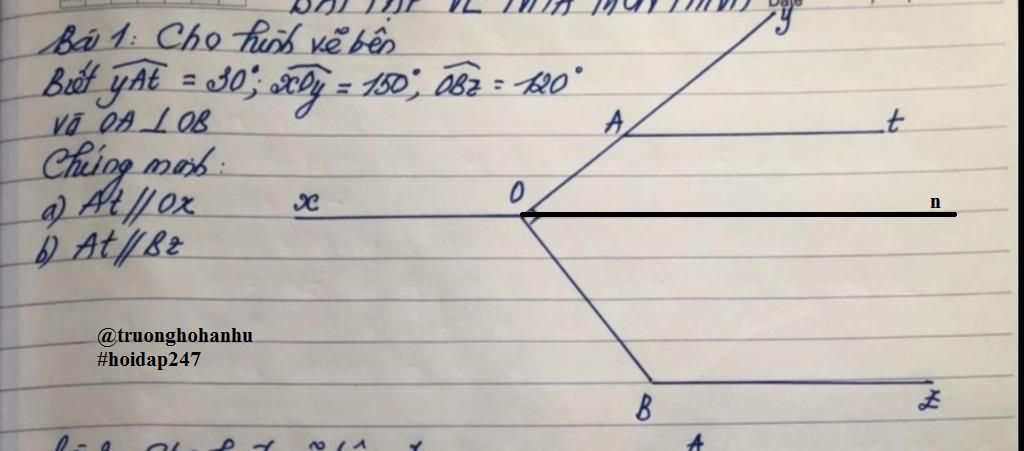 BÀI TẬP VỀ
Bài 1: Cho hình vẽ bên
Biết yAt = 30°; xOy = 150°, OBz = 120°
và OA ⊥ OB
Chứng minh:
a) At // Ox
b) At // Bz
y
A
t
O
x
n
B
z
@truonghohanhu
#hoidap247
A